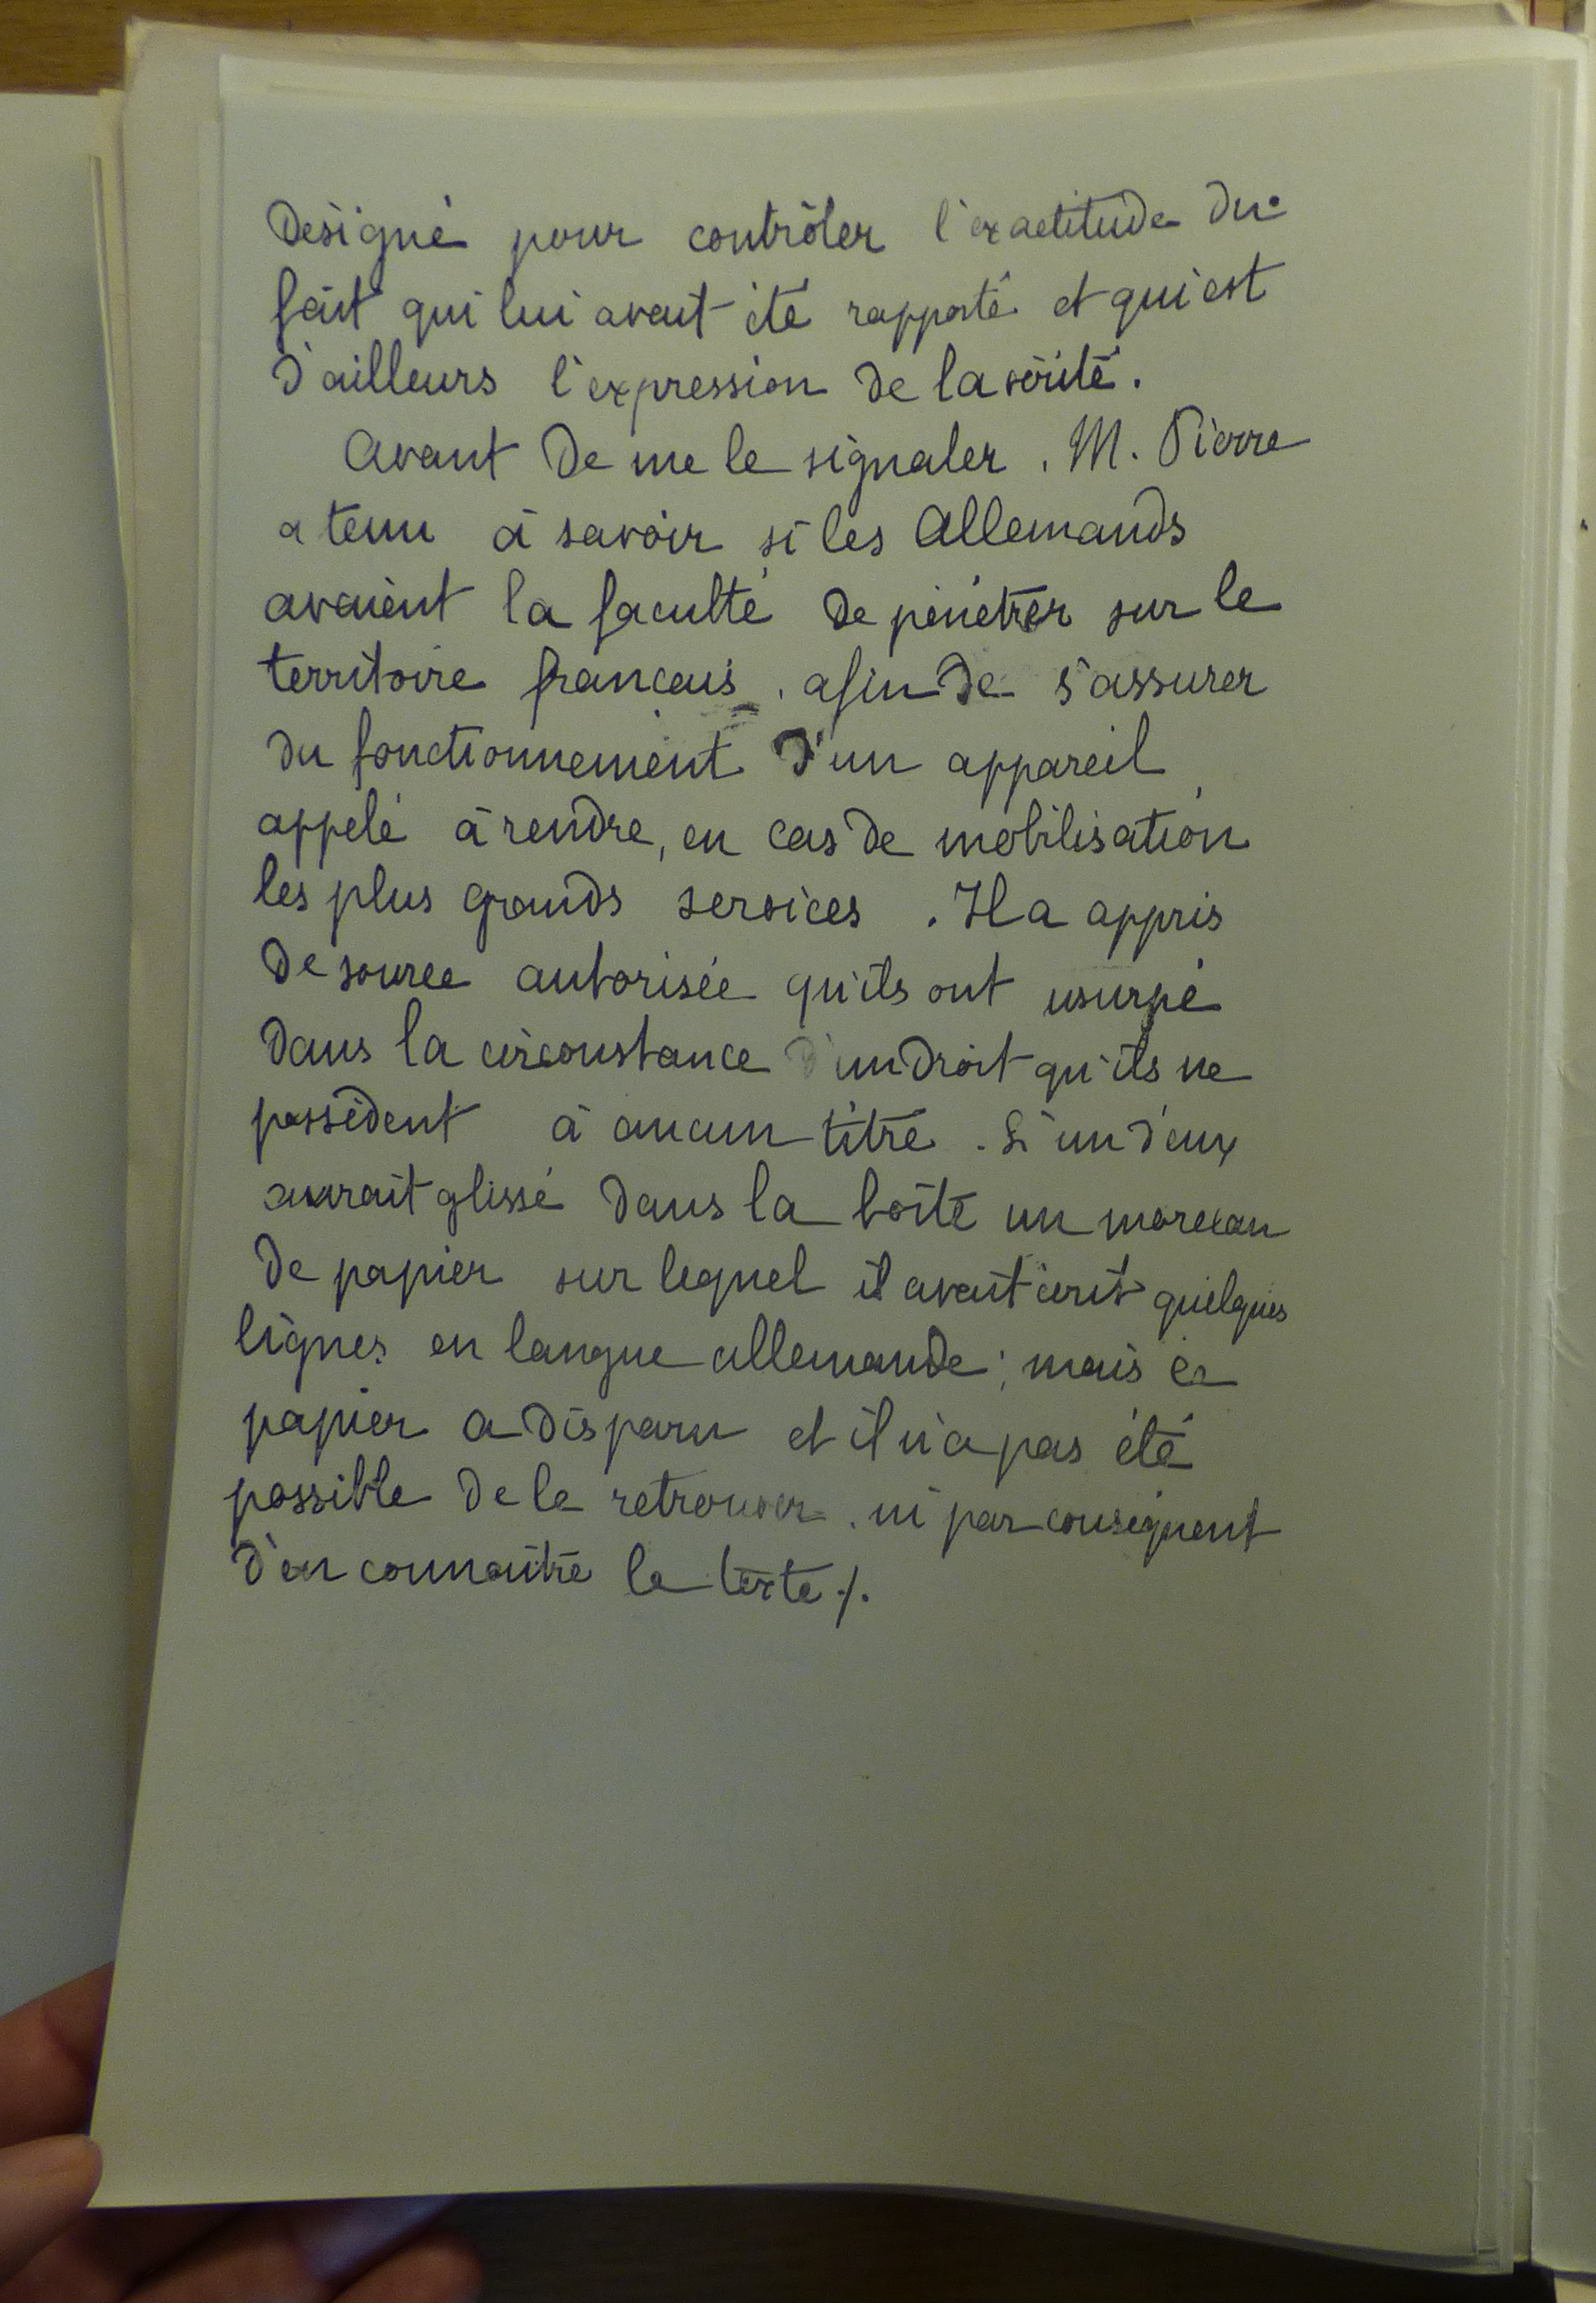 Désigné pour contrôler l'exactitude du
fait qui lui avait été rapporté et qui est
d'ailleurs l'expression de la vérité.
Avant de me le signaler, M. Pierre
a tenu à savoir si les Allemands
avaient la faculté de pénétrer sur le
territoire français, afin de s'assurer
du fonctionnement d'un appareil
appelé à rendre, en cas de mobilisation
les plus grands services. Il a appris
de source autorisée qu'ils ont usurpé
dans la circonstance d'un droit qu'ils ne
possèdent à aucun titre. L'un d'eux
aurait glissé dans la boîte un morceau
de papier sur lequel il avait écrit quelques
lignes en langue allemande; mais ce
papier a disparu et il n'a pas été
possible de le retrouver, ni par conséquent
d'en connaître le texte ./.